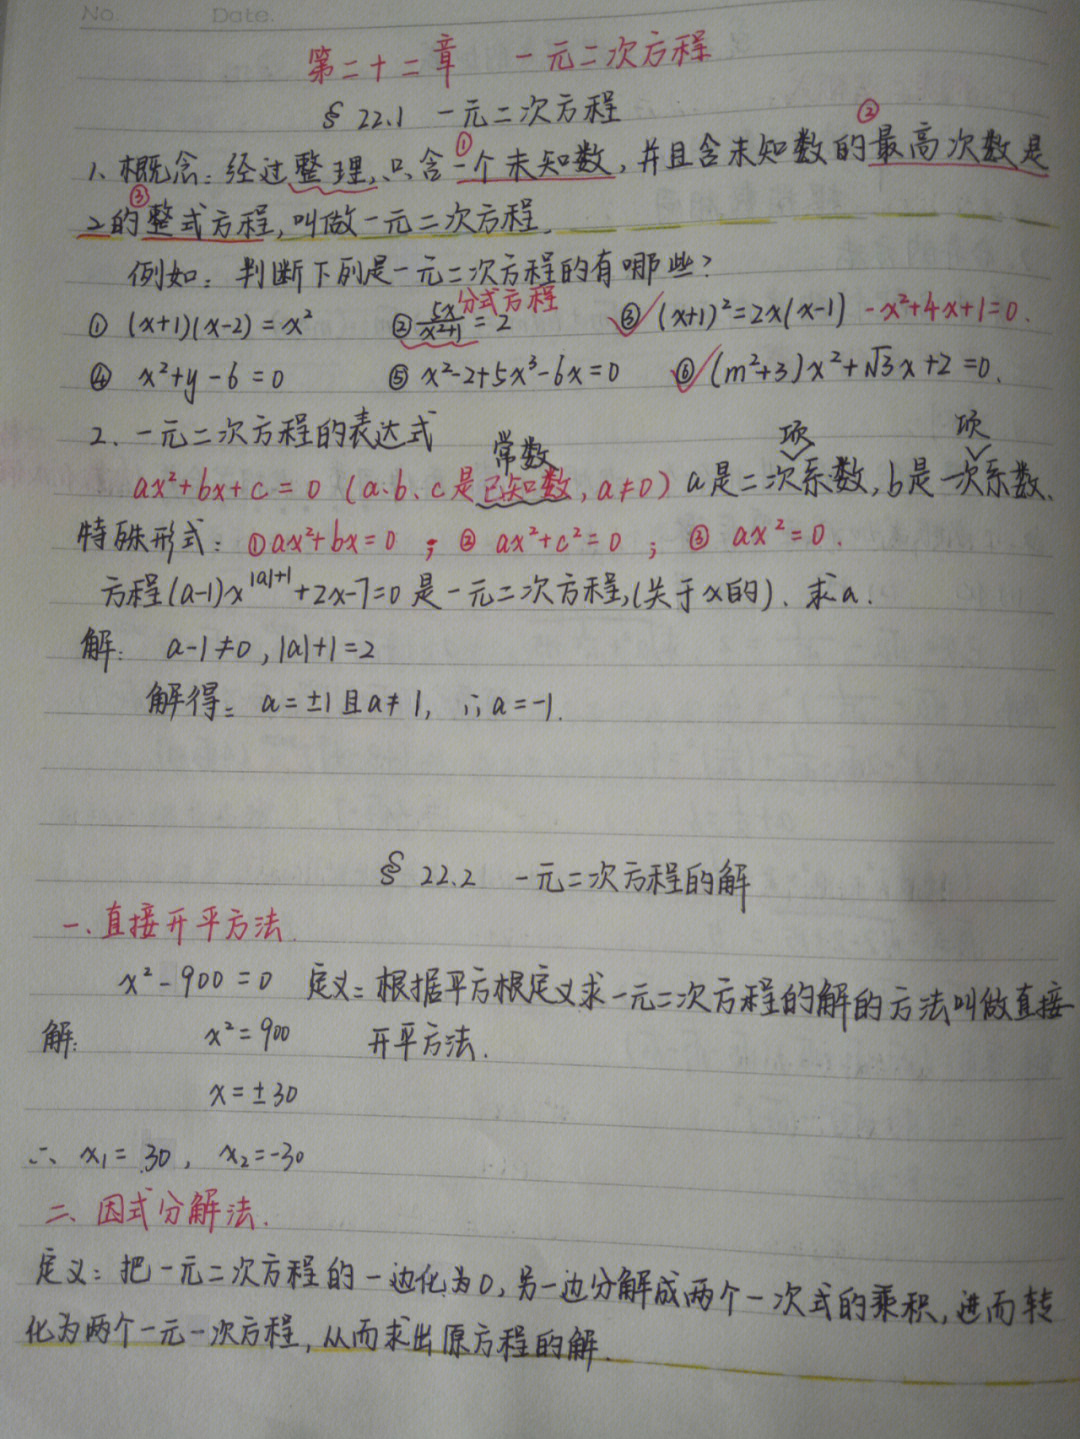 No. Date.
第二十二章 一元二次方程
§ 22.1 一元二次方程
② 
1、概念：经过整理,只含①一个未知数,并且含未知数的最高次数是
2的③整式方程,叫做一元二次方程.
例如：判断下列是一元二次方程的有哪些?
① (x+1)(x-2)=x² ② 5x/x²+1=2 分式方程 ③ ✓ (x+1)²=2x(x-1) -x²+4x+1=0.
④ x²+y-6=0 ⑤ x²-2+5x³-6x=0 ⑥ ✓ (m²+3)x²+√3x+2=0.
2、一元二次方程的表达式
常数 项 项
ax²+bx+c=0 (a.b.c是已知数,a≠0) a是二次系数,b是一次系数、
特殊形式：①ax²+bx=0；② ax²+c²=0；③ ax²=0.
方程(a-1)x^|a|+1+2x-7=0是一元二次方程,(关于x的)、求a.
解： a-1≠0,|a|+1=2
解得： a=±1且a≠1, ∴a=-1.
§ 22.2 一元二次方程的解
一、直接开平方法.
x²-900=0 定义：根据平方根定义求一元二次方程的解的方法叫做直接
解: x²=900 开平方法.
x=±30
∴ x₁=30, x₂=-30
二、因式分解法.
定义：把一元二次方程的一边化为0,另一边分解成两个一次式的乘积,进而转
化为两个一元一次方程,从而求出原方程的解.